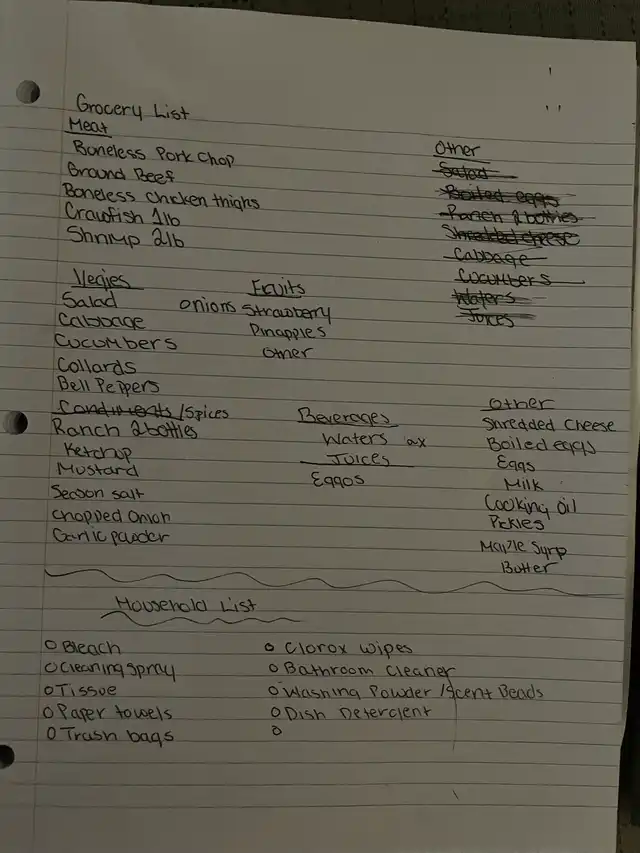 Grocery List
Meat
Boneless Pork Chop
Ground Beef
Boneless chicken thighs
Crawfish 1lb
Shrimp 2lb
Other
Salad
Boiled eggs
Ranch 2 bottles
Shredded cheese
Cabbage
Cucumbers
Waters
Juices
Vegies
Salad
Cabbage
Cucumbers
Collards
Bell Peppers
onions
Fruits
Strawberry
Pinapples
other
Condiments /Spices
Ranch 2bottles
Ketchup
Mustard
Season salt
Chopped onion
Garlic powder
Beverages
Waters 2x
Juices
Eggos
Other
Shredded Cheese
Boiled eggs
Eggs
Milk
Cooking oil
Pickles
Maple Syrp
Butter
Household List
Bleach
Cleaning spray
Tissue
Paper towels
Trash bags
Clorox wipes
Bathroom Cleaner
Washing Powder /Scent Beads
Dish Detergent